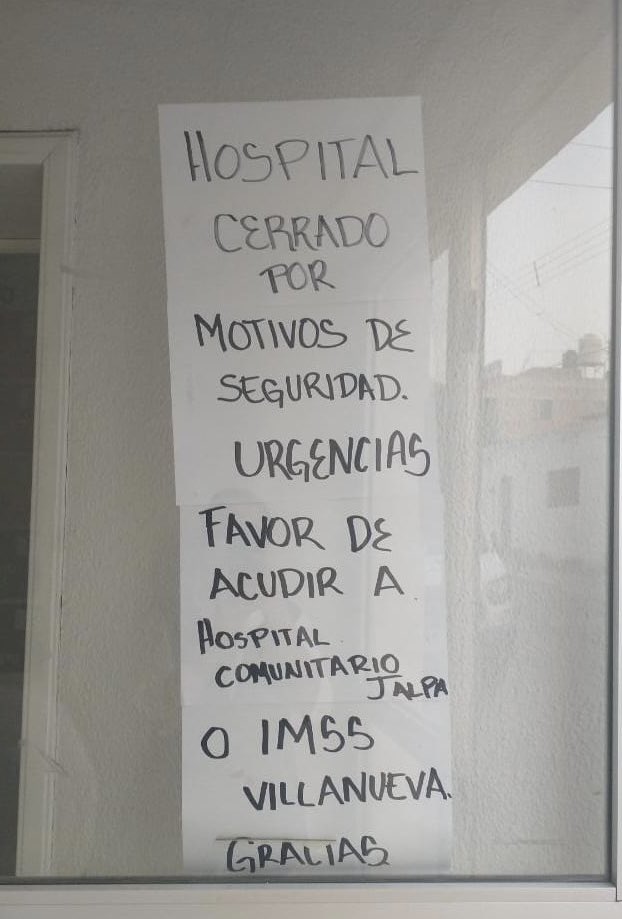 HOSPITAL
CERRADO
POR
MOTIVOS DE
SEGURIDAD.
URGENCIAS
FAVOR DE
ACUDIR A
HOSPITAL
COMUNITARIO
JALPA
O IMSS
VILLANUEVA.
GRACIAS